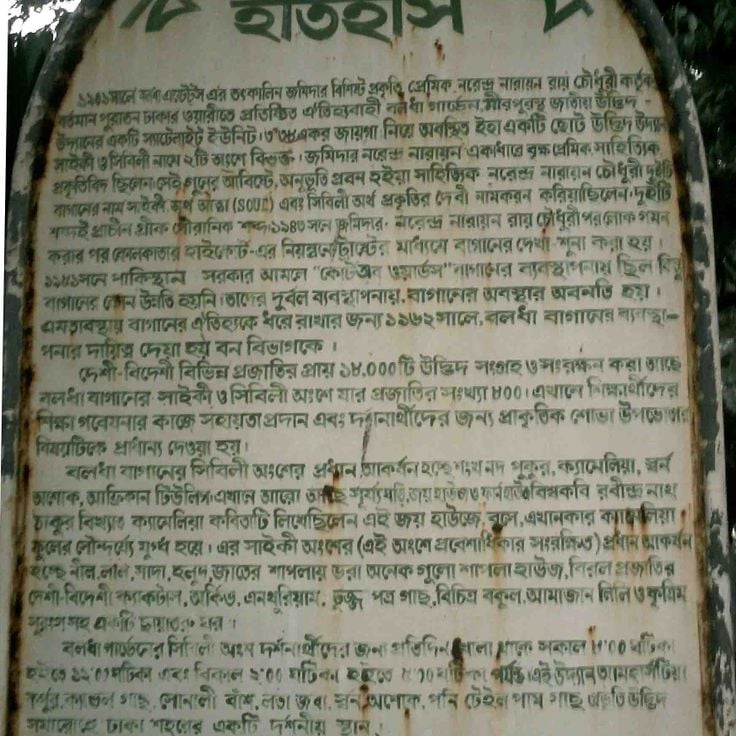 ইতিহাস
১৯০১সালে বলধা এস্টেটস এর তৎকালিন জমিদার বিশিষ্ট প্রকৃতি প্রেমিক নরেন্দ্র নারায়ন রায় চৌধুরী কর্তৃক
বর্তমান পুরাতন ঢাকার ওয়ারীতে প্রতিষ্ঠিত ঐতিহ্যবাহী বলধা গার্ডেন, মীরপুরস্থ জাতীয় উদ্ভিদ -
উদ্যানের একটি স্যাটেলাইট ইউনিট। ৩'৩৮একর জায়গা নিয়ে অবস্থিত ইহা একটি ছোট উদ্ভিদ উদ্যান
সাইকী ও সিবিলী নামে ২টি অংশে বিভক্ত। জমিদার নরেন্দ্র নারায়ন একাধারে বৃক্ষ প্রেমিক, সাহিত্যিক
প্রকৃতিবিদ ছিলেন। সেই গুনের আবিষ্টে, অনুভূতি প্রবন হইয়া সাহিত্যিক নরেন্দ্র নারায়ন চৌধুরী দুইটি
বাগানের নাম সাইকী, অর্থ আত্মা (SOUL) এবং সিবিলী অর্থ প্রকৃতির দেবী নামকরন করিয়াছিলেন। দুইটি
শব্দই প্রাচীন গ্রীক পৌরানিক শব্দ। ১৯৪৩ সনে জমিদার- নরেন্দ্র নারায়ন রায় চৌধুরী পরলোক গমন
করার পর কোলকাতার হাইকোর্ট-এর নিয়ন্ত্রনে ট্রাস্টের মাধ্যমে বাগানের দেখা শুনা করা হয়।
১৯৫১সনে পাকিস্থান সরকার আমলে "কোর্ট অব ওয়ার্ডস" বাগানের ব্যবস্থাপনায় ছিল কিন্তু
বাগানের কোন উন্নতি হয়নি। তাদের দুর্বল ব্যবস্থাপনায়, বাগানের অবস্থার অবনতি হয়।
এমতাবস্থায় বাগানের ঐতিহ্যকে ধরে রাখার জন্য ১৯৬২ সালে, বলধা বাগানের ব্যবস্থা-
পনার দায়িত্ব দেয়া হয় বন বিভাগকে।
দেশী-বিদেশী বিভিন্ন প্রজাতির প্রায় ১৮.০০০টি উদ্ভিদ সংগ্রহ ও সংরক্ষন করা আছে
বলধা বাগানের সাইকী ও সিবিলী অংশে যার প্রজাতির সংখ্যা ৮০০। এখানে শিক্ষার্থীদের
শিক্ষা গবেষনার কাজে সহায়তা প্রদান এবং দর্শনার্থীদের জন্য প্রাকৃতিক শোভা উপভোগের
বিষয়টিকে প্রাধান্য দেওয়া হয়।
বলধা বাগানের সিবিলী অংশের প্রধান আকর্ষন হচ্ছে শংখ নদ পুকুর, ক্যামেলিয়া, স্বর্ন
অশোক, আফ্রিকান টিউলিপ। এখানে আরো আছে সূর্য্যঘড়ি, জয় হাউজ ও ফার্ন হাউজ বিশ্বকবি রবীন্দ্র নাথ
ঠাকুর বিখ্যাত ক্যামেলিয়া কবিতাটি লিখেছিলেন এই জয় হাউজে, বসে, এখানকার ক্যামেলিয়া
ফুলের সৌন্দর্য্যে মুগ্ধ হয়ে। এর সাইকী অংশের (এই অংশে প্রবেশাধিকার সংরক্ষিত) প্রধান আকর্ষন
হচ্ছে নীল, লাল, সাদা, হলুদ জাতের শাপলায় ভরা অনেক গুলো শাপলা হাউজ, বিরল প্রজাতির
দেশী-বিদেশী ক্যাকটাস, অর্কিড, এনথুরিয়াম, ভূজ্জ পত্র গাছ, বিচিত্র বকুল, আমাজান লিলি ও কৃত্রিম
সুরংগ সহ একটি ছায়াতরু ঘর।
বলধা গার্ডেনের সিবিলী অংশ দর্শনার্থীদের জন্য প্রতিদিন খোলা থাকে সকাল ৮'০০ ঘটিকা
হইতে ১২'০০ ঘটিকা এবং বিকাল ২'০০ ঘটিকা হইতে ৫'০০ ঘটিকা পর্যন্ত। এই উদ্যান
কর্পুর, ক্যান্ডল গাছ, সোনালী বাঁশ, লতা জবা, স্বর্ন অশোক, পনি টেইল পাম গাছ প্রভৃতি উদ্ভিদ
সমারোহে ঢাকা শহরের একটি দর্শনীয় স্থান।